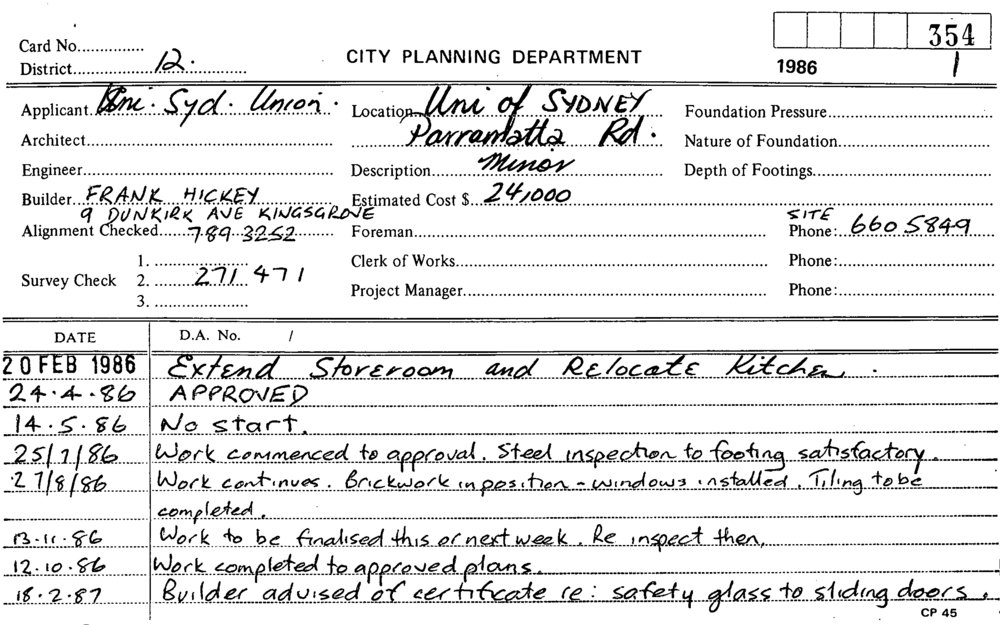 354
Card No...............
District.......12.............
CITY PLANNING DEPARTMENT
1986 1
Applicant Uni. Syd. Union.
Location Uni of SYDNEY
Foundation Pressure
Architect
Parramatta Rd.
Nature of Foundation
Engineer
Description Minor
Depth of Footings
Builder FRANK HICKEY
Estimated Cost $ 24,000
9 DUNKIRK AVE KINGSGROVE
SITE
Alignment Checked 789 3252
Foreman
Phone: 660 5849
1.
Clerk of Works
Phone:
Survey Check 2. 271 471
Project Manager
Phone:
3.
DATE D.A. No. /
20 FEB 1986 Extend Storeroom and Relocate Kitchen.
24.4.86 APPROVED
14.5.86 No start.
25/7/86 Work commenced to approval. Steel inspection to footing satisfactory.
27/8/86 Work continues. Brickwork in position - windows installed. Tiling to be
completed.
13.11.86 Work to be finalised this or next week. Re inspect then.
12.10.86 Work completed to approved plans.
18.2.87 Builder advised of certificate re: safety glass to sliding doors.
CP 45